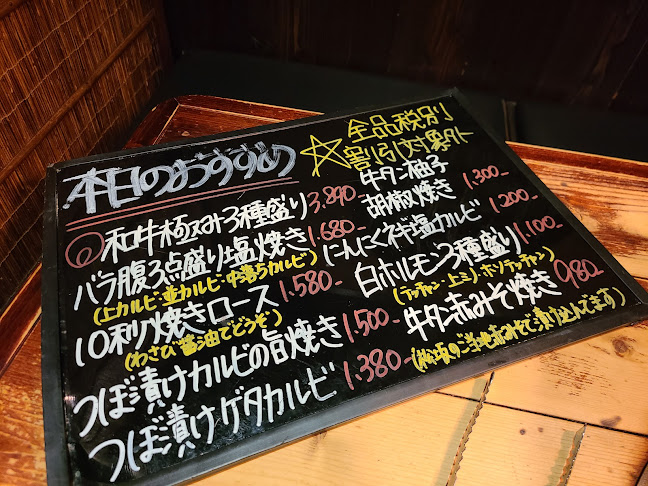 本日のおすすめ
☆全品税別
割引対象外
◎和牛極み3種盛り 3.890
バラ腹3点盛り塩焼き 1.680-
(上カルビ・並カルビ・中落ちカルビ)
10秒焼きロース 1.580-
(わさび醤油でどうぞ)
つぼ漬けカルビの旨焼き 1.500-
つぼ漬けゲタカルビ 1.380-
牛タン柚子
胡椒焼き 1.300-
にんにくネギ塩カルビ 1.200-
白ホルモン3種盛り 1.100-
(テッチャン・上ミノ・ホソテッチャン)
牛タン赤みそ焼き 980-
のご当地赤みそで漬け込んでます)